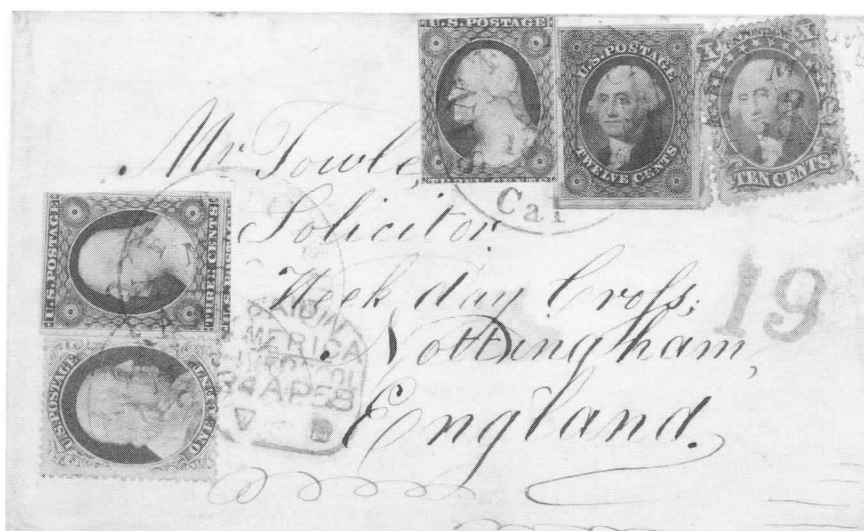 U.S.POSTAGE
U.S.POSTAGE
TWELVE CENTS
X X
TEN CENTS
Cal
19
Mr Towle,
Solicitor
Week day Cross,
Nottingham,
England.
U.S.POSTAGE
THREE CENTS
U.S.POSTAGE
PAID IN
AMERICA
LIVERPOOL
24AP58